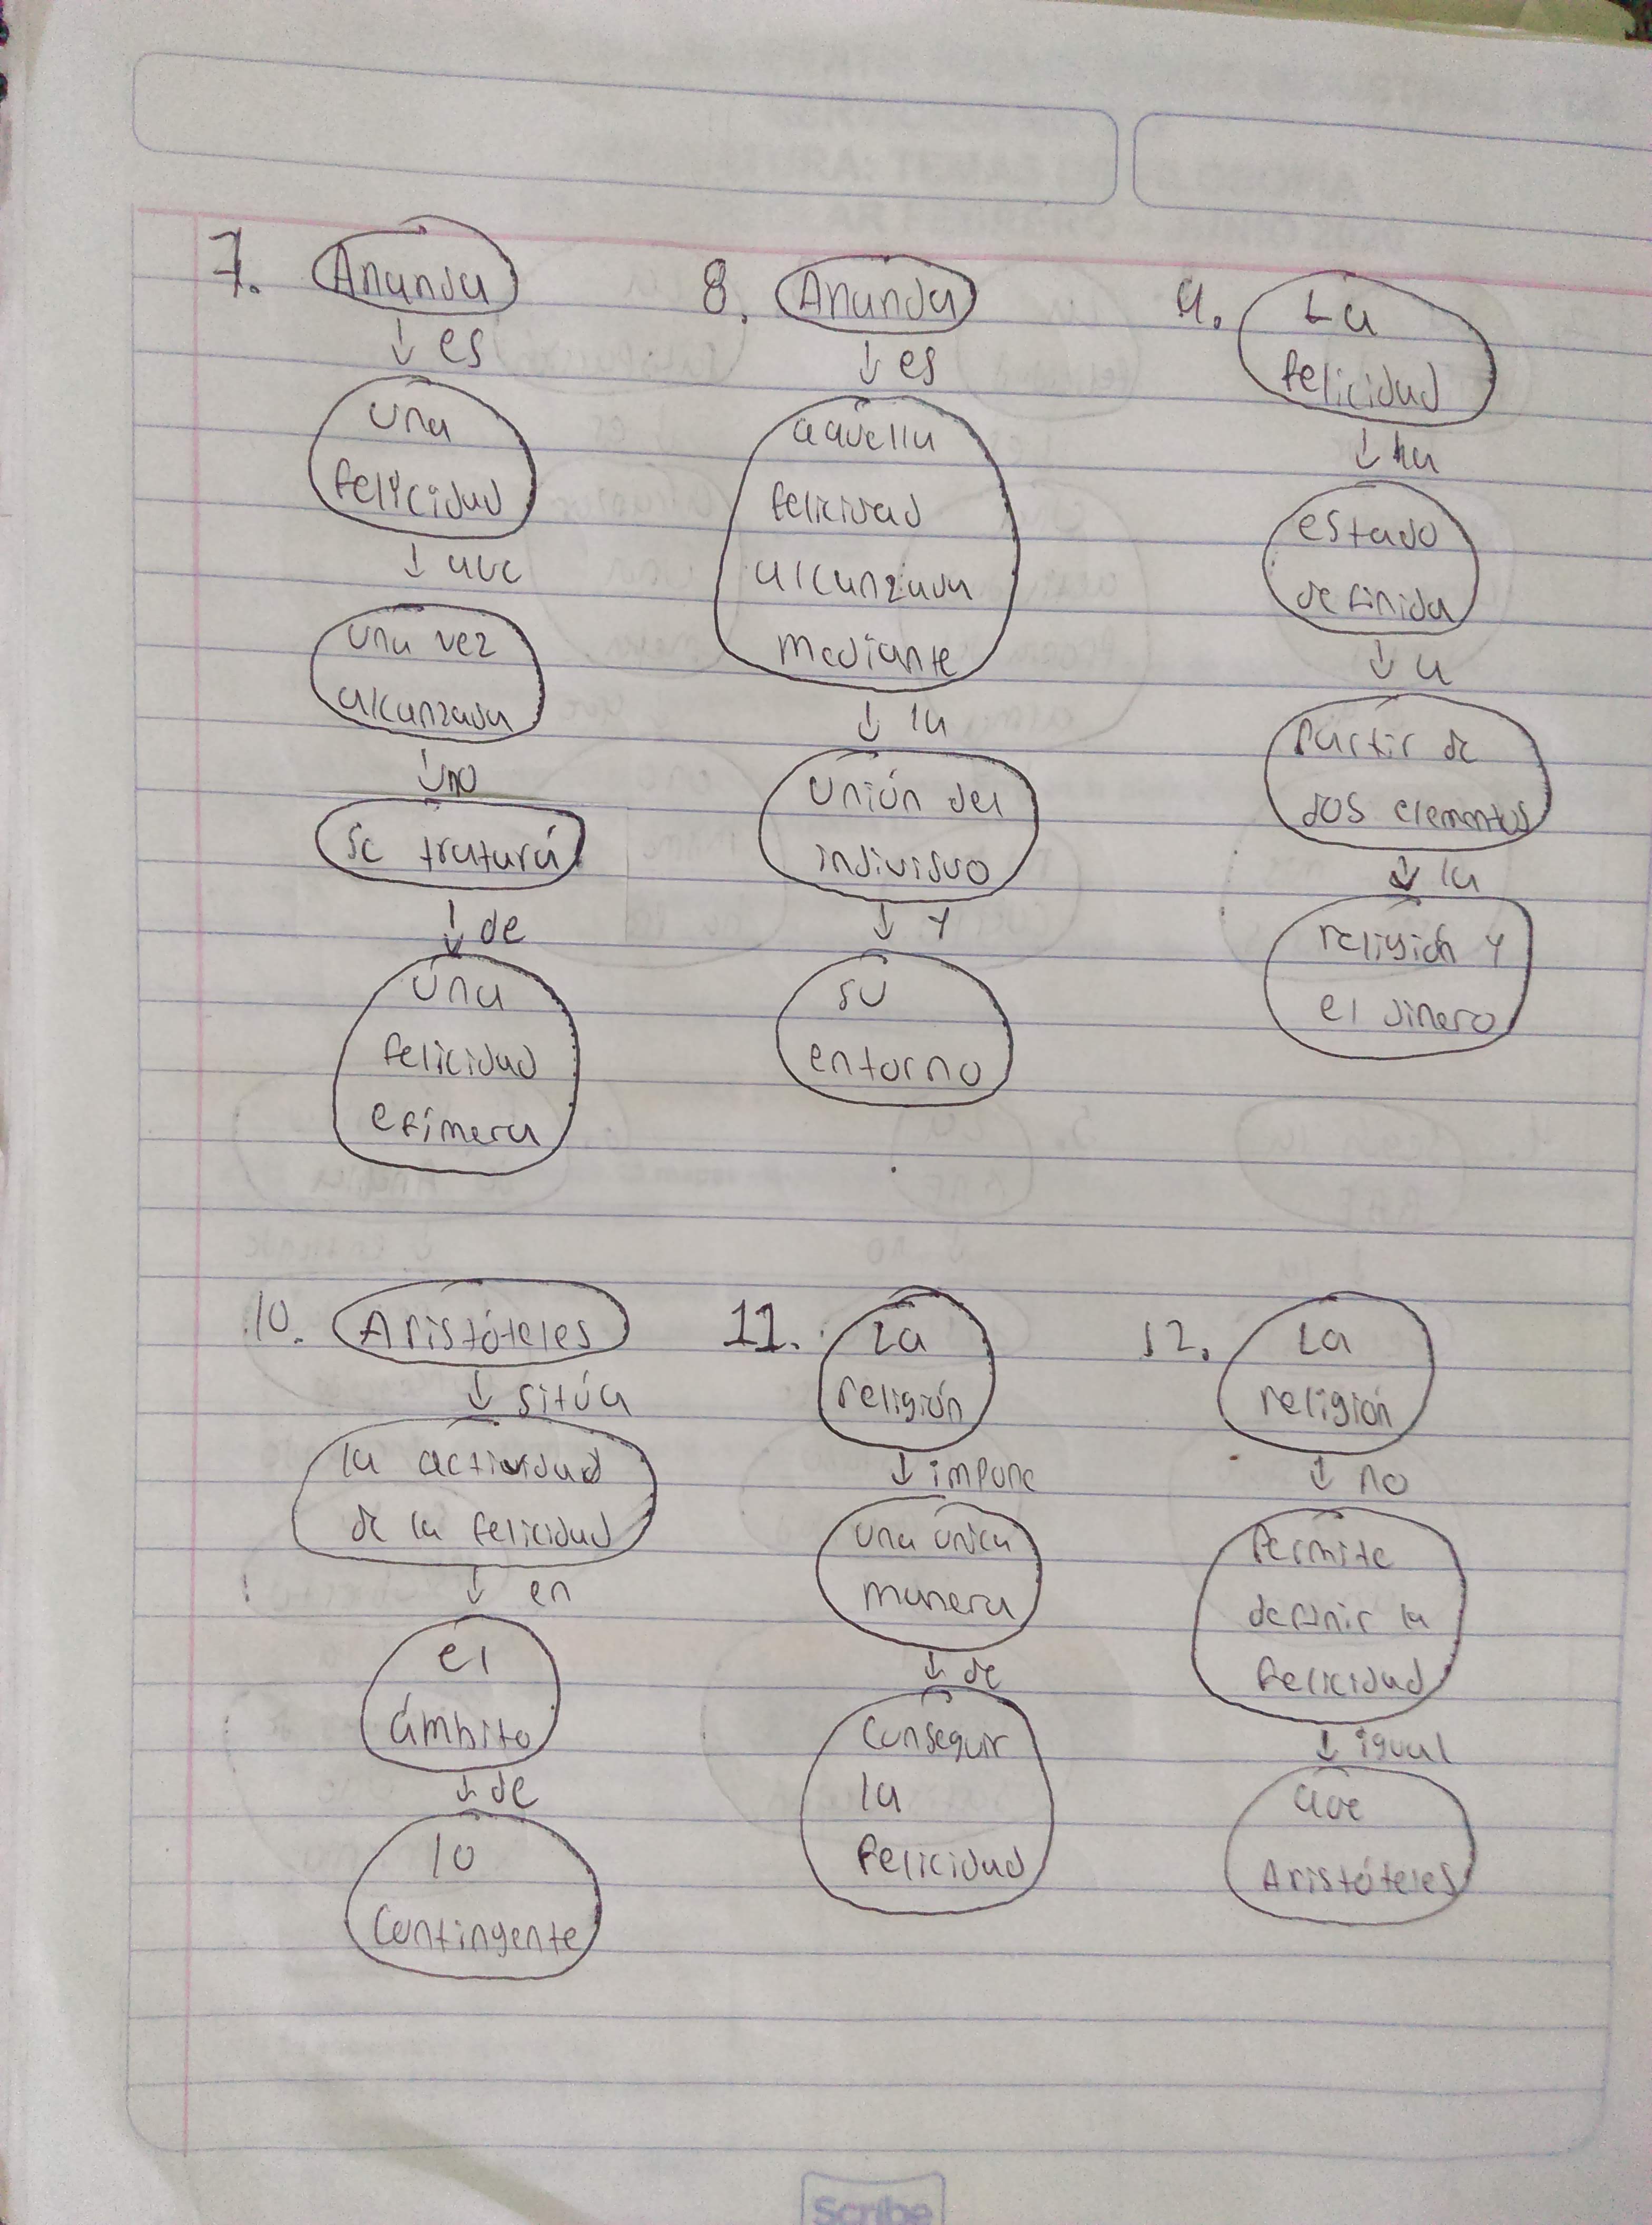 7. Ananda
↓ es
una
felicidad
↓ que
una vez
alcanzada
↓ no
se tratará
↓ de
una
felicidad
efímera
8. Ananda
↓ es
aquella
felicidad
alcanzada
mediante
↓ la
unión del
individuo
↓ y
su
entorno
9. La
felicidad
↓ ha
estado
definida
↓ a
partir de
dos elementos
↓ la
religión y
el dinero
10. Aristóteles
↓ sitúa
la actividad
de la felicidad
↓ en
el
ámbito
↓ de
lo
contingente
11. La
religión
↓ impone
una única
manera
↓ de
conseguir
la
felicidad
12. La
religión
↓ no
permite
definir la
felicidad
↓ igual
que
Aristóteles
Scribe